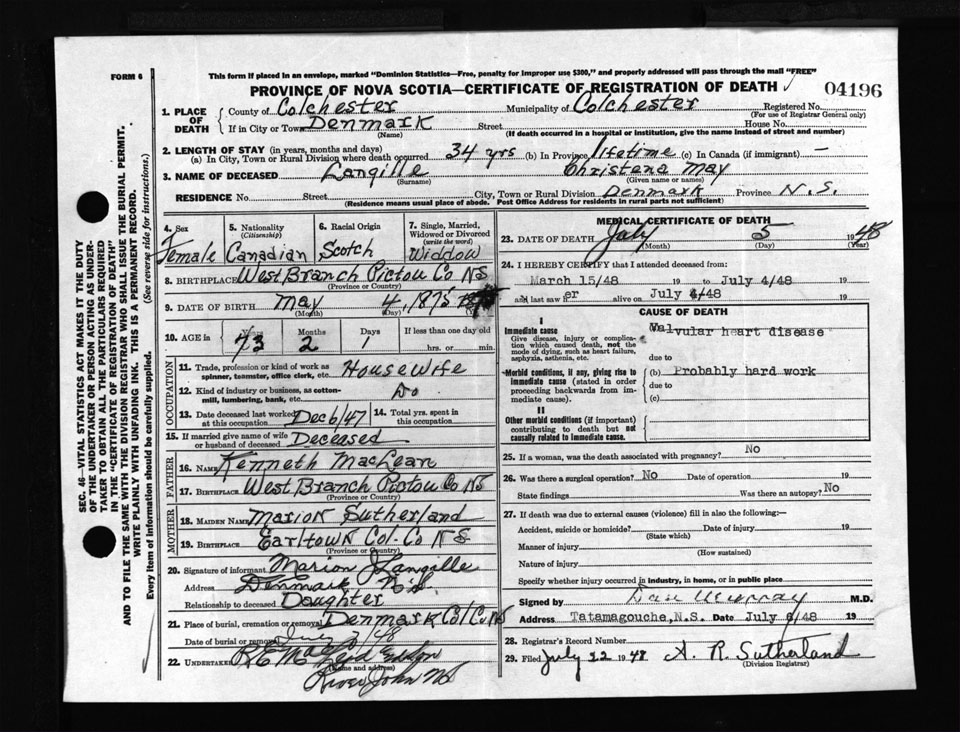 FORM 6
This form if placed in an envelope, marked "Dominion Statistics—Free, penalty for improper use $300," and properly addressed will pass through the mail "FREE"
PROVINCE OF NOVA SCOTIA—CERTIFICATE OF REGISTRATION OF DEATH
04196
1. PLACE OF DEATH County of Colchester Municipality of Colchester Registered No.
(For use of Registrar General only)
If in City or Town Denmark Street House No.
(Name) (If death occurred in a hospital or institution, give the name instead of street and number)
2. LENGTH OF STAY (in years, months and days)
(a) In City, Town or Rural Division where death occurred 34 yrs (b) In Province lifetime (c) In Canada (if immigrant) —
3. NAME OF DECEASED Langille Christene May
(Surname) (Given name or names)
RESIDENCE No. Street City, Town or Rural Division Denmark Province N.S.
(Residence means usual place of abode. Post Office Address for residents in rural parts not sufficient)
4. Sex 5. Nationality (Citizenship) 6. Racial Origin 7. Single, Married, Widowed or Divorced (write the word)
Female Canadian Scotch Widdow
8. BIRTHPLACE West Branch Pictou Co NS
(Province or Country)
9. DATE OF BIRTH May 4, 1875
(Month) (Day)
10. AGE in Years Months Days If less than one day old
73 2 1 hrs. or min.
OCCUPATION
11. Trade, profession or kind of work as spinner, teamster, office clerk, etc. Housewife
12. Kind of industry or business, as cotton-mill, lumbering, bank, etc. Do
13. Date deceased last worked at this occupation Dec 6/47 14. Total yrs. spent in this occupation
15. If married give name of wife or husband of deceased Deceased
FATHER
16. NAME Kenneth MacLean
17. BIRTHPLACE West Branch Pictou Co NS
(Province or Country)
MOTHER
18. MAIDEN NAME Marion Sutherland
19. BIRTHPLACE Earltown Col. Co NS
(Province or Country)
20. Signature of informant Marion J Langille
Address Denmark N.S.
Relationship to deceased Daughter
21. Place of burial, cremation or removal Denmark Col Co NS
Date of burial or removal July 7/48
22. UNDERTAKER
(Name and address)
River John NS
MEDICAL CERTIFICATE OF DEATH
23. DATE OF DEATH July 5 1948
(Month) (Day) (Year)
24. I HEREBY CERTIFY that I attended deceased from:
March 15/48 19 to July 4/48 19
and last saw her alive on July 4/48 19
CAUSE OF DEATH
I
Immediate cause
Give disease, injury or complication which caused death, not the mode of dying, such as heart failure, asphyxia, asthenia, etc.
Valvular heart disease
due to
Morbid conditions, if any, giving rise to immediate cause (stated in order proceeding backwards from immediate cause).
(b) Probably hard work
due to
(c)
II
Other morbid conditions (if important) contributing to death but not causally related to immediate cause.
25. If a woman, was the death associated with pregnancy? No
26. Was there a surgical operation? No Date of operation 19
State findings Was there an autopsy? No
27. If death was due to external causes (violence) fill in also the following:—
Accident, suicide or homicide? Date of injury 19
(State which)
Manner of injury
(How sustained)
Nature of injury
Specify whether injury occurred in industry, in home, or in public place
Signed by Dan Murray M.D.
Address Tatamagouche, N.S. Date July 6/48 19
28. Registrar's Record Number
29. Filed July 22 1948 A. R. Sutherland
(Division Registrar)
SEC. 46—VITAL STATISTICS ACT MAKES IT THE DUTY
OF THE UNDERTAKER OR PERSON ACTING AS UNDER-
TAKER TO OBTAIN ALL THE PARTICULARS REQUIRED
IN THE "CERTIFICATE OF REGISTRATION OF DEATH"
AND TO FILE THE SAME WITH THE DIVISION REGISTRAR WHO SHALL ISSUE THE BURIAL PERMIT.
WRITE PLAINLY WITH UNFADING INK. THIS IS A PERMANENT RECORD.
Every item of information should be carefully supplied. (See reverse side for instructions.)